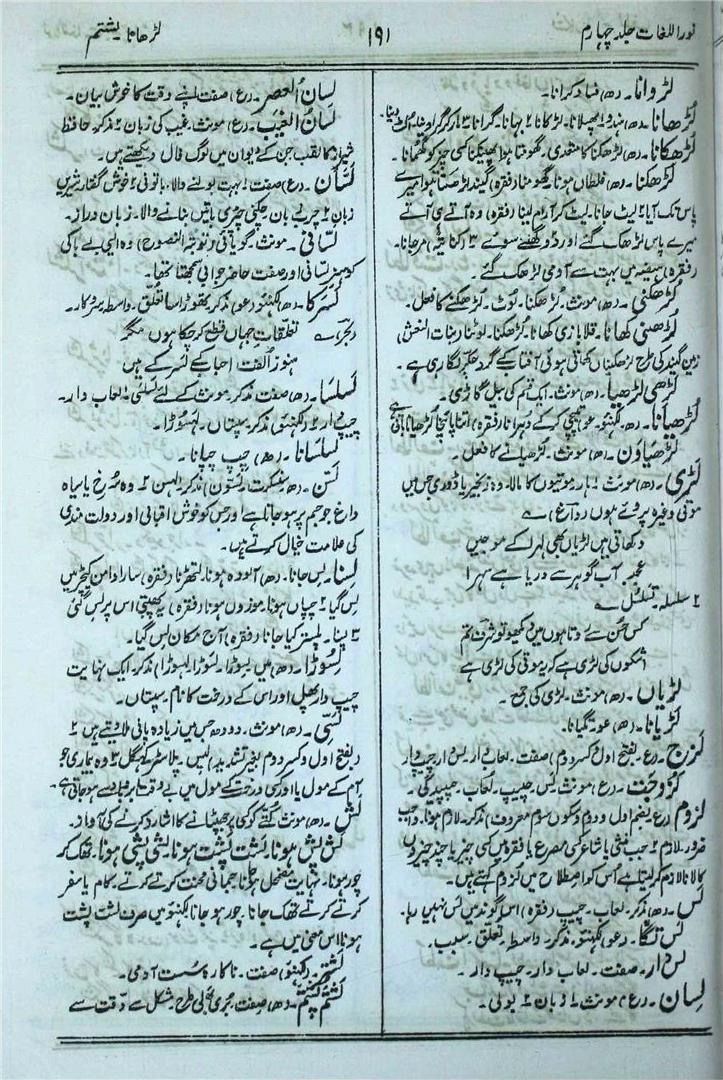 نور اللغات جلد چہارم
۱۹۱
لڑھانا یشتم
لڑوانا۔ (ھ) فساد کرانا۔
لڑھانا۔ (ھ)
لڑھکانا۔ (ھ) لڑھکنا کا متعدی۔ گھومتا ہوا پھینکنا کسی چیز کو گھمانا۔
لڑھکنا۔ (ھ) غلطاں ہونا۔ گھومنا (فقرہ) گیند لڑھکتا ہوا میرے
پاس تک آیا ۲ لیٹ جانا۔ لیٹ کر آرام لینا (فقرہ) وہ آتے ہی آتے
میرے پاس لڑھک گئے اور دو گھنٹے سوئے ۳ (کنایۃً) مر جانا۔
(فقرہ) ہیضہ میں بہت سے آدمی لڑھک گئے۔
لڑھکنی۔ (ھ) مونث۔ لڑھکنا۔ لوٹ۔ لڑھکنے کا فعل۔
لڑھکنی کھانا۔ قلابازی کھانا۔ لڑھکنا۔ لوٹنا (بنات النعش)
زمین گیند کی طرح لڑھکنیاں کھاتی ہوئی آفتاب کے گرد چکر لگا رہی ہے۔
لڑھی لڑھیا۔ (ھ) مونث۔ ایک قسم کی بیل گاڑی۔
لڑھیانا۔ (ھ۔ لکھنؤ۔ عو)
لڑھیاون۔ (ھ) مونث۔ لڑھیانے کا فعل۔
لڑی۔ (ھ) مونث ۱ ہار۔ موتیوں کا مالا۔ وہ زنجیر یا ڈوری جس میں
موتی وغیرہ پروئے ہوں (داغ) ؎
دکھاتی ہیں لڑیاں بھی لہرا کے موجیں
عجب آب گوہر سے دریا ہے سہرا
۲ سلسلہ۔ تسلسل ؎
کس حسن سے روتا ہوں میں دیکھو تو شرف تم
اشکوں کی لڑی ہے کہ یہ موتی کی لڑی ہے
لڑیاں۔ (ھ) مونث۔ لڑی کی جمع۔
لڑیانا۔ (ھ) عو۔
لزج۔ (ع۔ بفتح اول و کسر دوم) صفت۔ لعاب دار۔ لس دار چیپ دار
لزوجت۔ (ع) مونث۔ لس۔ چیپ۔ لعاب۔ چیپیدگی۔
لزوم (ع۔ بضم اول و دوم و سکون سوم معروف) مذکر۔ لازم ہونا۔ واجب
ضرور۔ لازم ۲ جب منشی یا شاعر کسی مصرع یا فقرہ میں کسی چیز یا چند چیزوں
کا لانا لازم کر لیتا ہے اُس کو اصطلاح میں لزوم کہتے ہیں۔
لس۔ (ھ) مذکر۔ لعاب۔ چیپ (فقرہ) اس گوند میں لس نہیں رہا۔
لس لگا۔ (عو) لکھنؤ۔ مذکر۔ واسطہ۔ تعلق۔ سبب۔
لس دار۔ صفت۔ لعاب دار۔ چیپ دار۔
لسان۔ (ع) مونث ۱ زبان ۲ بولی۔
لسان العصر۔ (ع) صفت۔ اپنے وقت کا خوش بیان۔
لسان الغیب۔ (ع) مونث۔ غیب کی زبان ۲ مذکر۔ حافظ
شیراز کا لقب جن کے دیوان میں لوگ فال دیکھتے ہیں۔
لسّان۔ (ع) صفت ۱ بہت بولنے والا۔ باتونی ۲ خوش گفتار شیریں
زبان ۳ چرب زبان۔ چکنی چپڑی باتیں بنانے والا۔ زبان دراز۔
لسّانی۔ مونث۔ گویائی (توبۃ النصوح) وہ ایسی بے باکی
کو ہنر لسانی اور صفت حاضر جوابی سمجھتا تھا۔
لسرکا۔ (ھ) لکھنؤ (عو) مذکر۔ تھوڑا سا تعلق۔ واسطہ۔ سروکار۔
(بحر) ؎ تعلقات جہاں قطع کر چکا ہوں مگر
ہنوز الفت احباب کے لسرکے ہیں
لسلسا۔ (ھ) صفت مذکر۔ مونث کے لئے لسلسی ۱ لعاب دار۔
چیپ دار ۲ (لکھنؤ) مذکر۔ سپستاں۔ لہسوڑا۔
لسلسانا۔ (ھ) چپ چپانا۔
لسن۔ (ھ) سنسکرت۔ مذکر۔ لہسن ۲ وہ سرخ یا سیاہ
داغ جو جسم پر ہو جاتا ہے اور جس کو خوش اقبالی اور دولت مندی
کی علامت خیال کرتے ہیں۔
لسنا۔ لس جانا۔ (ھ) آلودہ ہونا۔ لتھڑنا (فقرہ) سارا دامن کیچڑ میں
لس گیا ۲ چسپاں ہونا۔ موزوں ہونا (فقرہ) یہ پھبتی اس پر لس گئی
۳ لیپنا۔ پلستر کیا جانا (فقرہ) آج مکان لس گیا۔
لسوڑا۔ (ھ) مذکر۔ ایک نہایت
چیپ دار پھل اور اس کے درخت کا نام۔ سپستاں۔
لسّی۔ (ھ) مونث۔ دودھ جس میں زیادہ پانی ملا دیتے ہیں ۲
(بفتح اول و کسر دوم بغیر تشدید) لیس۔ پلاستر۔ کہگل ۳ وہ بیماری جو
آم کے مول یا اور کسی درخت کے مول میں
لش۔ (ھ) مونث۔ کتے کو کسی پر جھپٹانے کا اشارہ کرنے کی آواز۔
لش پش ہونا۔ لشت پشت ہونا۔ لشی پشی ہونا۔ تھک کر
چور ہونا۔ نہایت مضمحل ہونا۔ جسمانی محنت کرتے کرتے۔ کام یا سفر
کرتے کرتے تھک جانا۔ چور ہو جانا۔ لکھنؤ میں صرف لشت پشت
ہونا اس معنی میں ہے۔
لشتر۔ (لکھنؤ) صفت۔ ناکارہ۔ سست آدمی۔
لشتم پشتم۔ (ھ) صفت۔ بُری بھلی طرح۔ مشکل سے۔ دقت سے